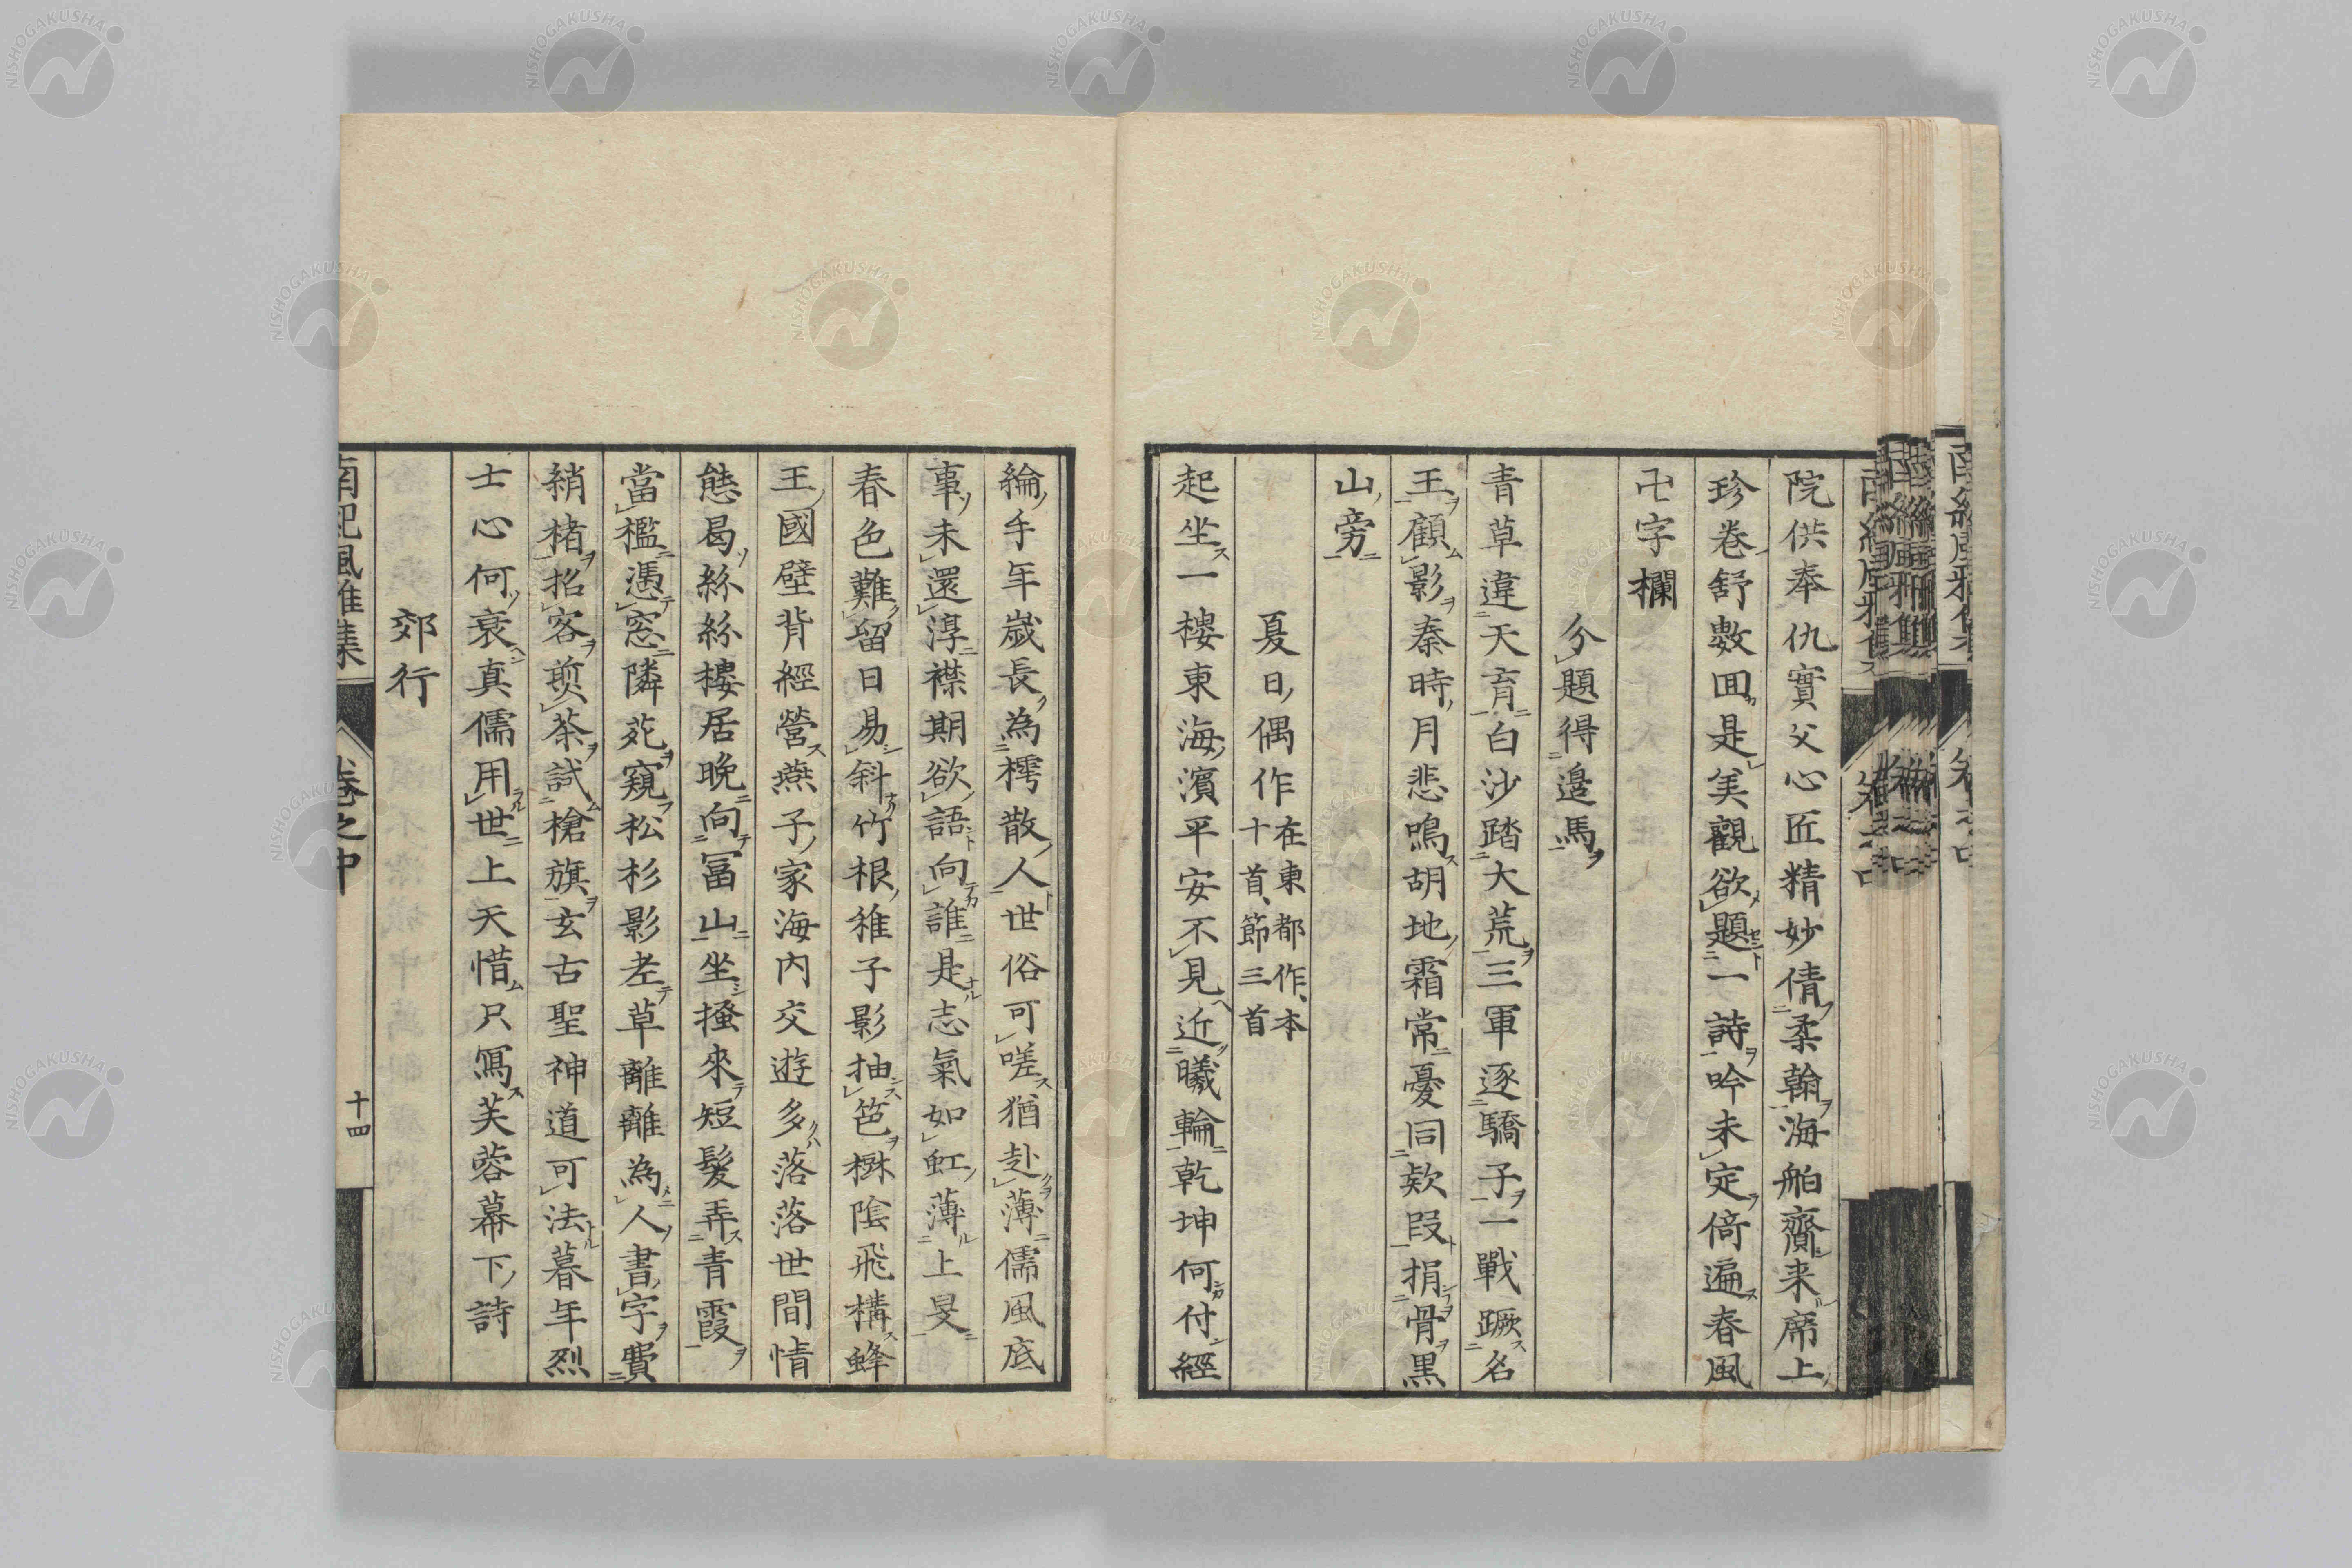 院供奉仇實父心匠精妙倩柔翰海舶齎来席上
珍卷舒數囬是美觀欲題一詩吟未定倚遍春風
卍字欄
分題得邉馬
青草違天育白沙踏大荒三軍逐驕子一戰蹶名
王顧影秦時月悲鳴胡地霜常憂同欵叚捐骨黒
山旁
夏日偶作在東都作本十首節三首
起坐一樓東海濵平安不見近曦輪乾坤何付經
綸手年嵗長為樗散人世俗可嗟猶赴薄儒風底
事未還淳襟期欲語向誰是志氣如虹薄上旻
春色難留日易斜竹根稚子影抽笆楙陰飛構蜂
王國壁背經營燕子家海内交遊多落落世間情
態曷絲絲樓居晩向冨山坐搔來短髮弄青霞
當檻憑窓隣苑窺松杉影老草離離為人書字費
綃楮招客煎茶試槍旗玄古聖神道可法暮年烈
士心何衰真儒用世上天惜只寫芙蓉幕下詩
郊行
南紀風雅集
卷之中
十四
NISHOGAKUSHA